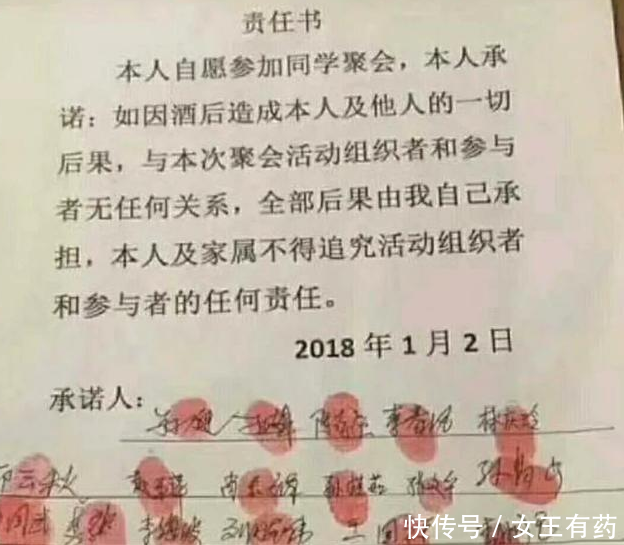 责任书
本人自愿参加同学聚会，本人承
诺：如因酒后造成本人及他人的一切
后果，与本次聚会活动组织者和参与
者无任何关系，全部后果由我自己承
担，本人及家属不得追究活动组织者
和参与者的任何责任。
2018 年 1 月 2 日
承诺人：
快传号 / 女王有药